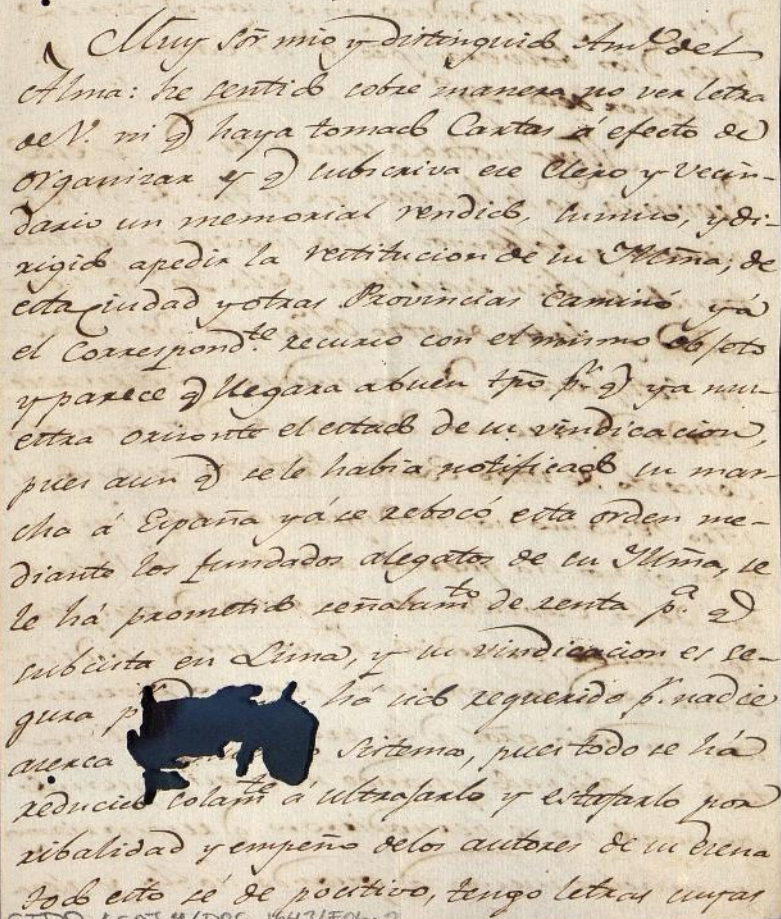 Muy sõr mio y distinguido Amº del
Alma: he sentido sobre manera no ver letra
de V. ni q haya tomado Cartas á efecto de
organizar y q subscriva ese Clero y Vecin-
dario un memorial rendido, sumiso, y di-
rigido apedir la restitucion de su Illma; de
esta Ciudad y otras Provincias caminó yá
el Correspondte recurso con el mismo objeto
y parece q llegara abuen tpõ pr. q ya
el estado de su vindicacion,
pues aun q se le habia notificado su mar-
cha á España yá se rebocó esta orden me-
diante los fundados alegatos de su Illma, se
le há prometido señalamto de renta pa. q
subsista en Lima, y su vindicacion es se-
gura há sido requerido pr. nadie
acerca Sistema, pues todo se há
reducido solamte á ultrajarlo y estafarlo por
ribalidad y empeño delos autores de su
todo esto sé de positivo, tengo letras suyas